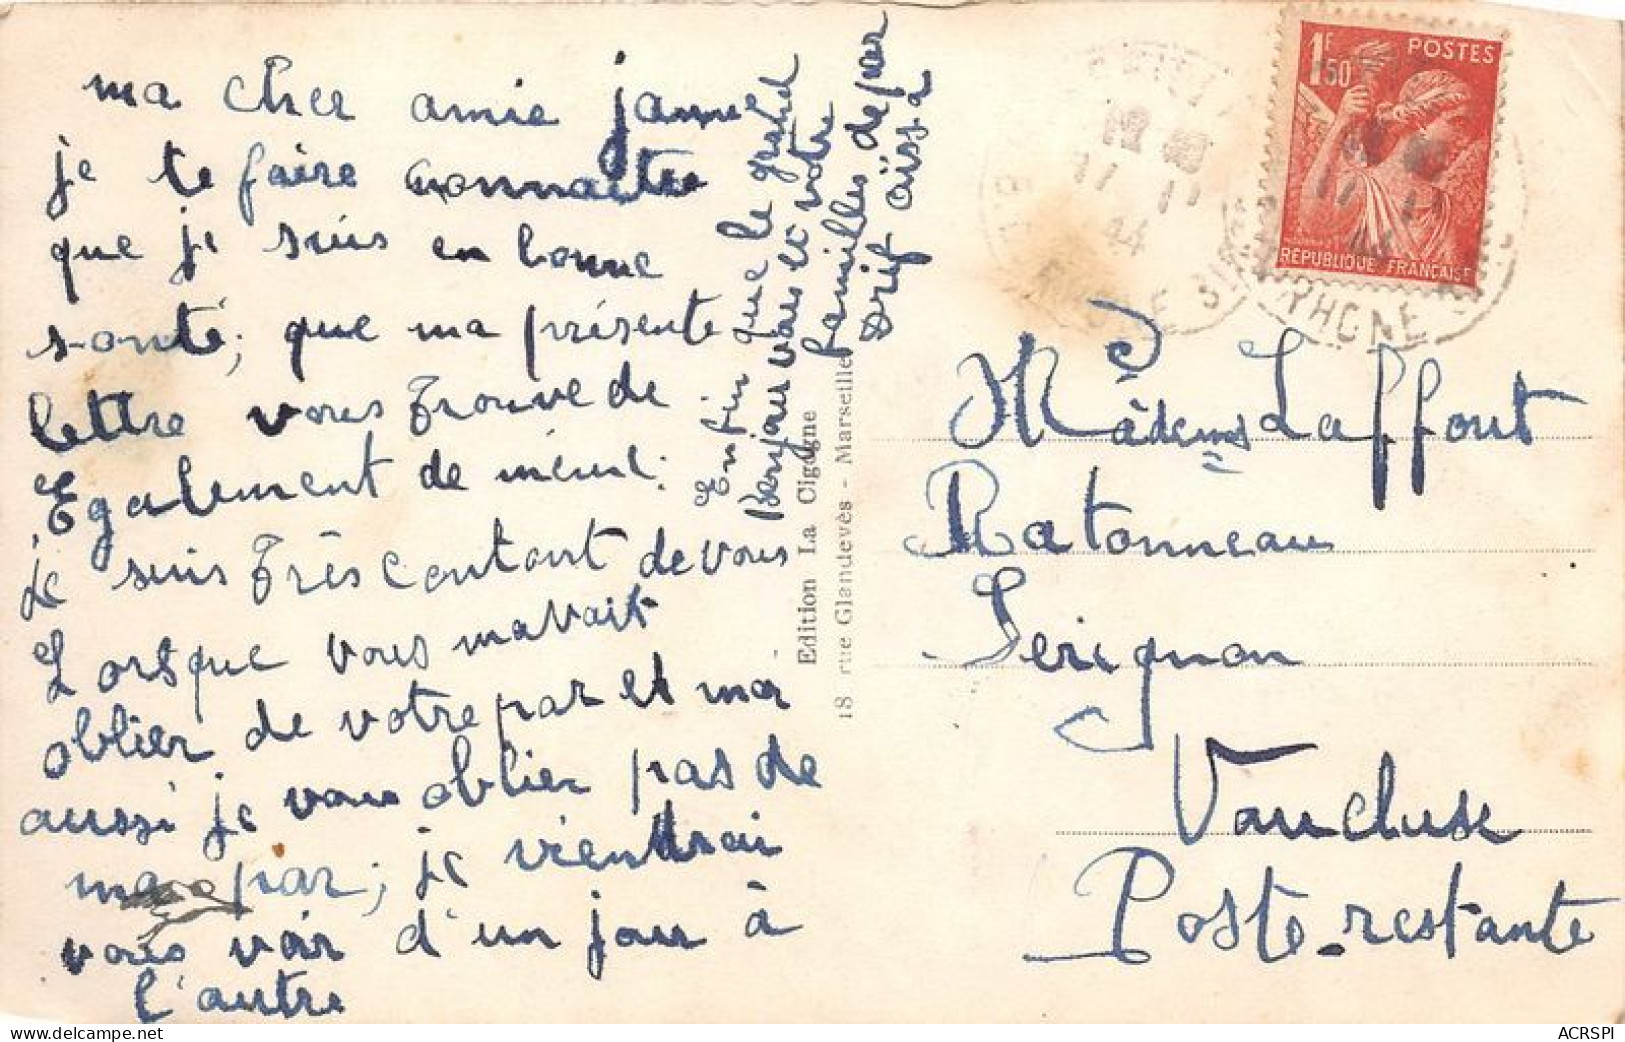 ma cher amie janne
je te faire connaitre
que je suis en bonne
santé, que ma présente
lettre vous trouve de
Egalement de même.
Je suis très contant de vous
Lorsque vous mavait
oblier de votre par et moi
aussi je vous oblier pas de
ma par; je viendrai
vous voir d'un jour à
l'autre
Enfin que le grand
Bonjour vous et votre
familles de par
Srif aïssa
Edition La Cigogne
18 rue Glandevès - Marseille
1F50
POSTES
RÉPUBLIQUE FRANÇAISE
17 11
44
RHONE
Madems Laffont
Ratonneau
Serignon
Vaucluse
Poste-restante
delcampe.net
ACRSPI